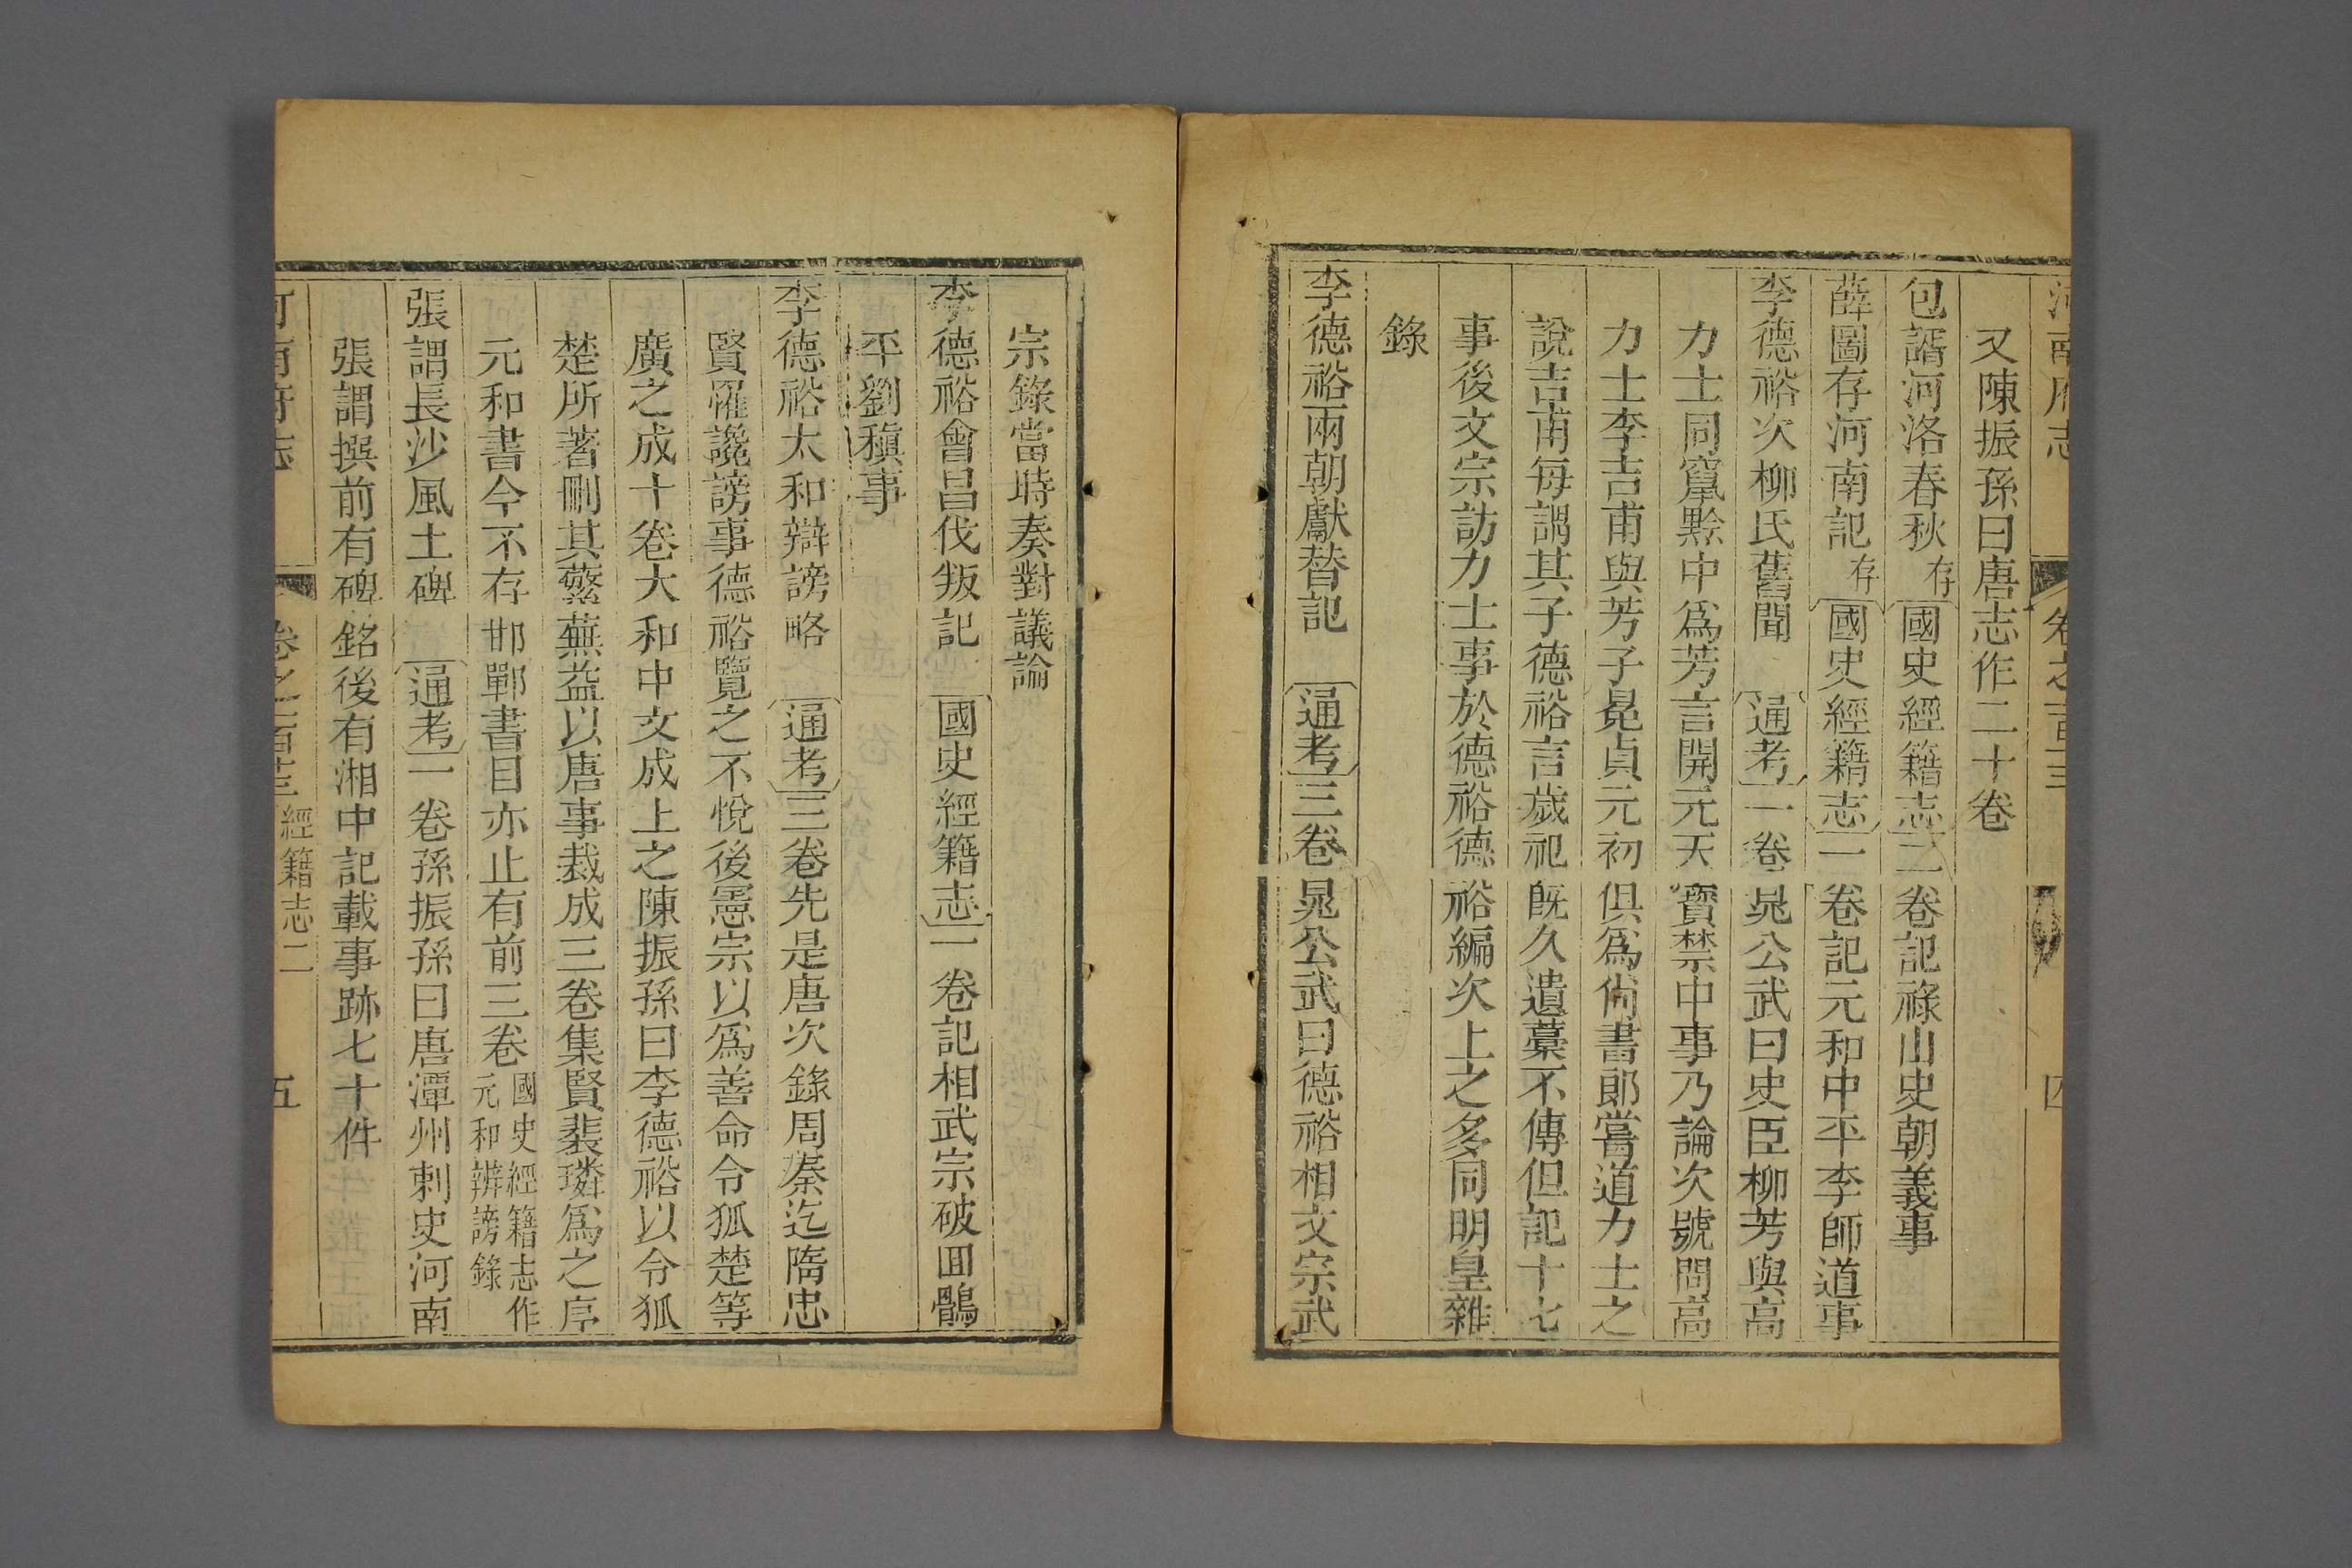 河南府志 卷之百三 四
又陳振孫曰唐志作二十卷
包諝河洛春秋 存 國史經籍志二卷記祿山史朝義事
薛圖存河南記 存 國史經籍志一卷記元和中平李師道事
李德裕次柳氏舊聞 通考一卷 晁公武曰史臣柳芳與高
力士同竄黔中爲芳言開元天寶禁中事乃論次號問高
力士李吉甫與芳子冕貞元初俱爲尙書郞嘗道力士之
說吉甫每謂其子德裕言歲祀旣久遺藁不傳但記十七
事後文宗訪力士事於德裕德裕編次上之多同明皇雜
錄
李德裕兩朝獻替記 通考三卷 晁公武曰德裕相文宗武
宗錄當時奏對議論
李德裕會昌伐叛記 國史經籍志一卷記相武宗破回鶻
平劉稹事
李德裕太和辯謗略 通考三卷先是唐次錄周秦迄隋忠
賢罹讒謗事德裕覽之不悅後憲宗以爲善命令狐楚等
廣之成十卷大和中文成上之陳振孫曰李德裕以令狐
楚所著刪其蘩蕪益以唐事裁成三卷集賢裴璘爲之序
元和書今不存邯鄲書目亦止有前三卷 國史經籍志作元和辨謗錄
張謂長沙風土碑 通考一卷孫振孫曰唐潭州刺史河南
張謂撰前有碑銘後有湘中記載事跡七十件
河南府志 卷之百三 經籍志二 五